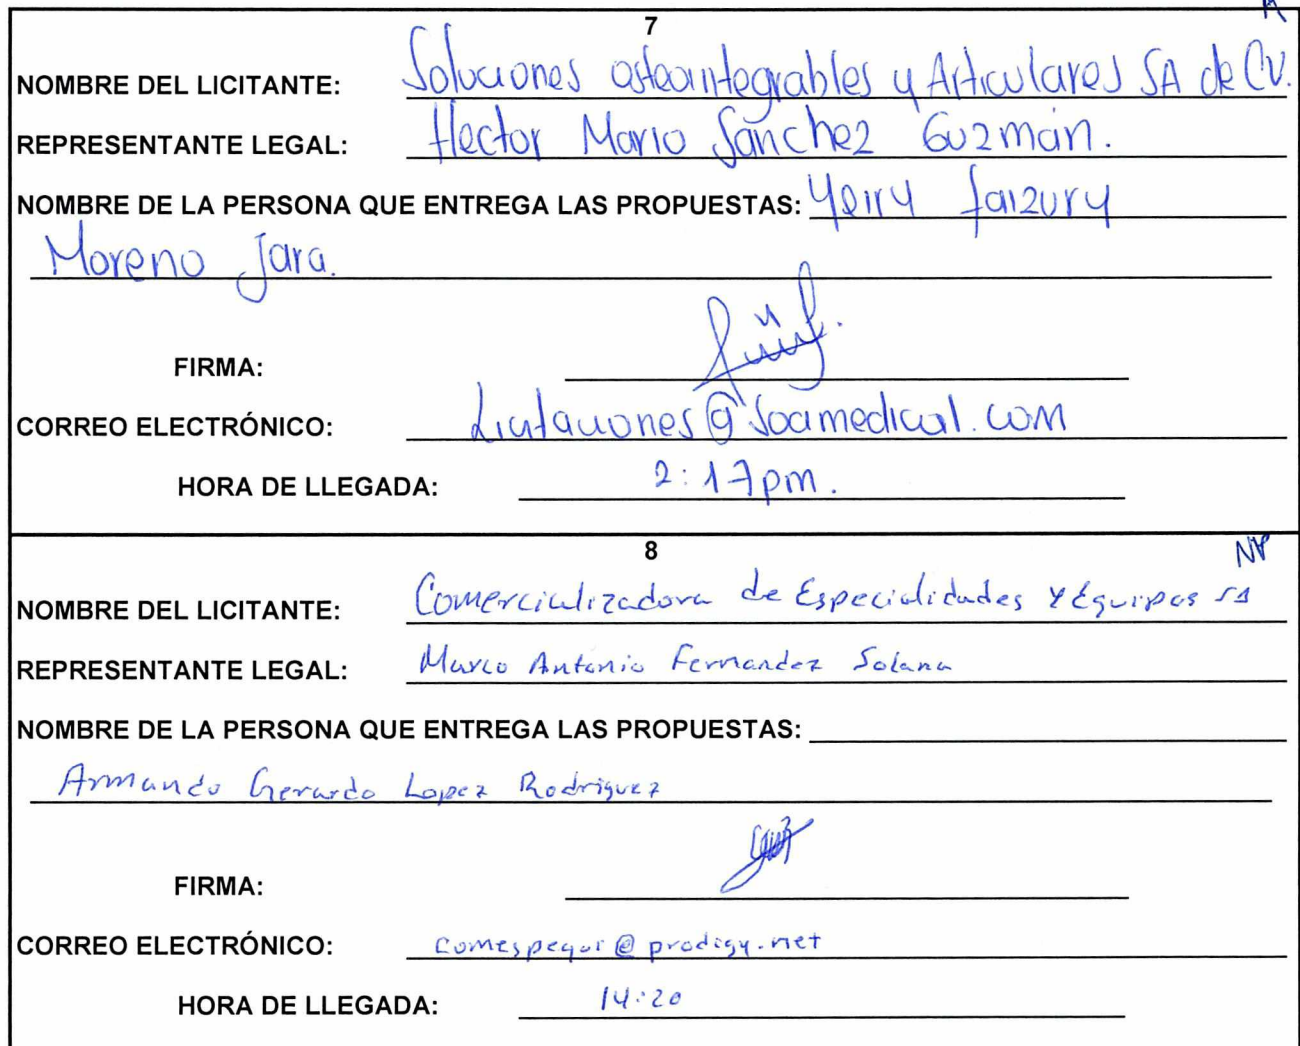 7
NOMBRE DEL LICITANTE: Soluciones osteointegrables y Articulares SA de CV.
REPRESENTANTE LEGAL: Hector Mario Sánchez Guzmán.
NOMBRE DE LA PERSONA QUE ENTREGA LAS PROPUESTAS: Yeiry
Moreno Jara.
FIRMA:
CORREO ELECTRÓNICO: Licitaciones@soamedical.com
HORA DE LLEGADA: 2:17pm.
8
NOMBRE DEL LICITANTE: Comercializadora de Especialidades y Equipos SA
REPRESENTANTE LEGAL: Marco Antonio Fernandez Solana
NOMBRE DE LA PERSONA QUE ENTREGA LAS PROPUESTAS:
Armando Gerardo Lopez Rodriguez
FIRMA:
CORREO ELECTRÓNICO: comespequi@prodigy.net
HORA DE LLEGADA: 14:20